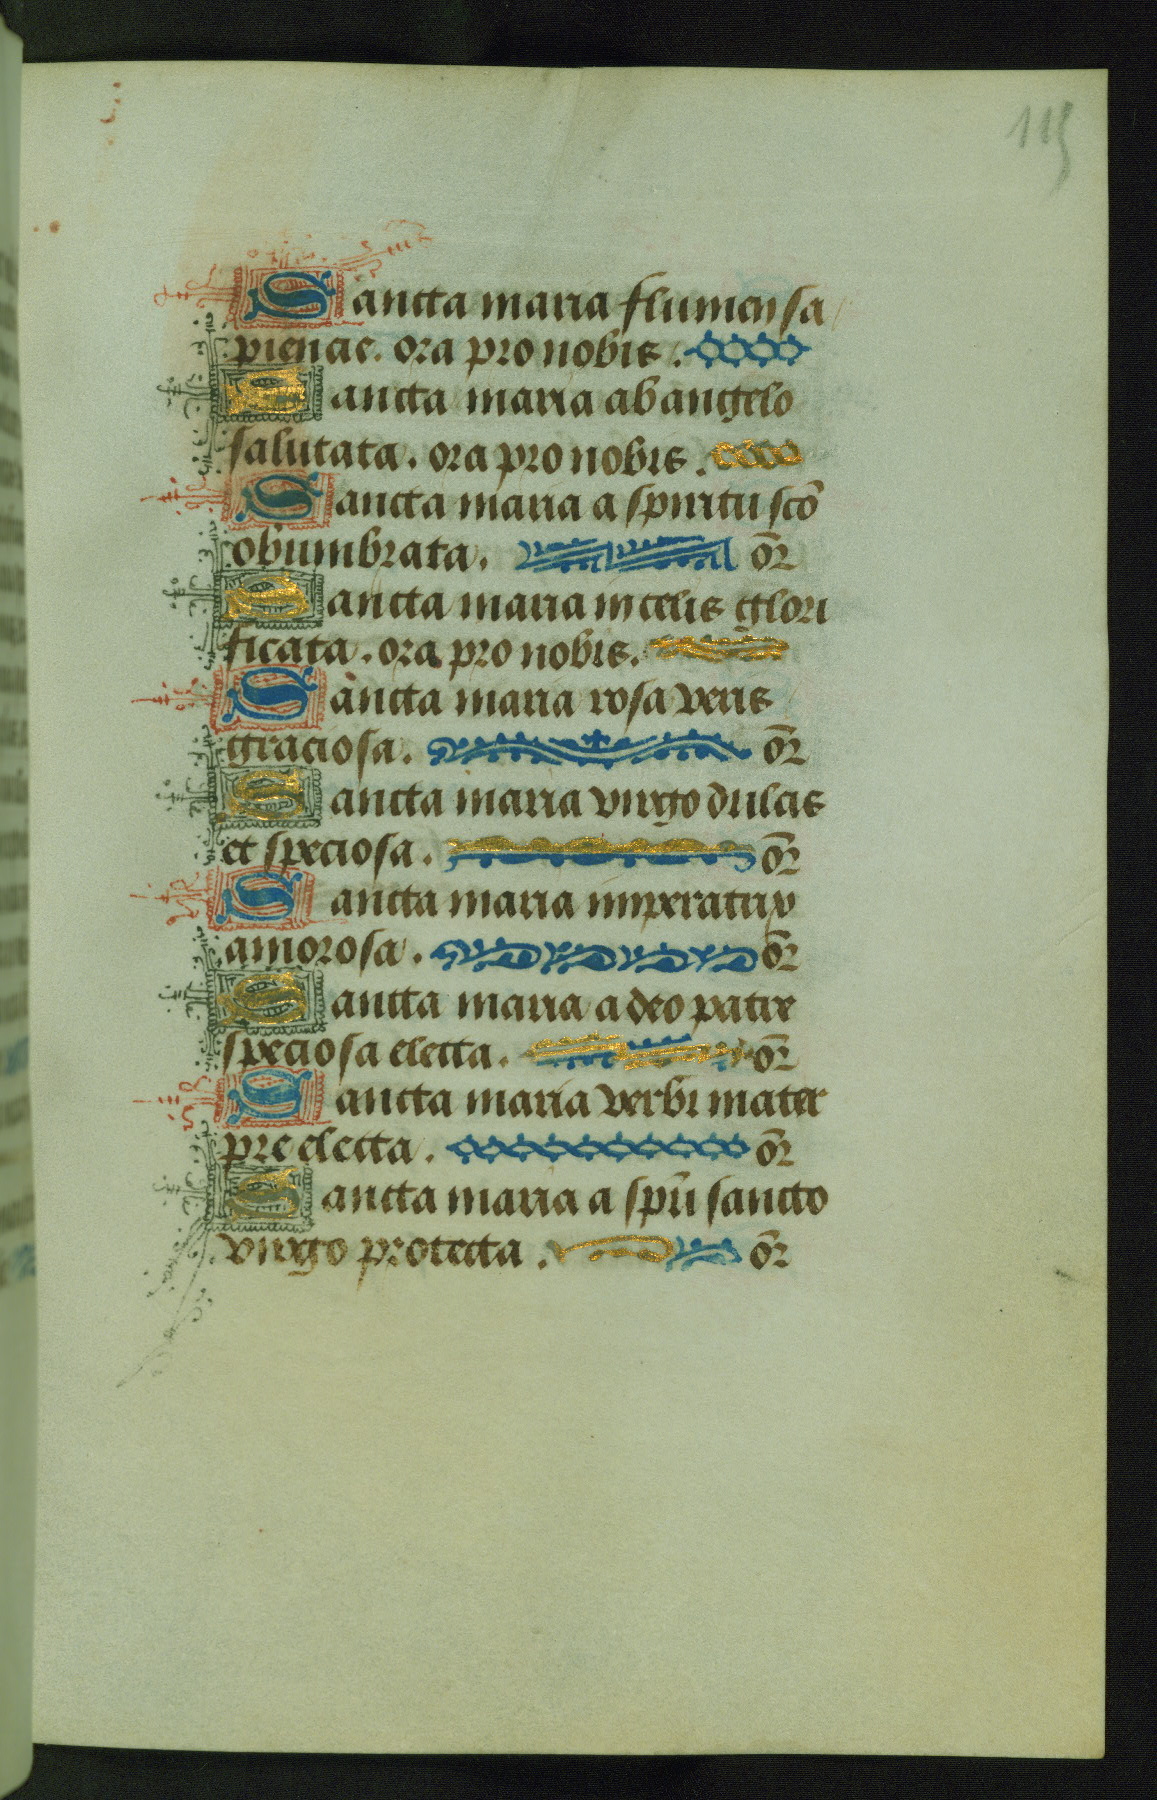 115
Sancta maria flumen sa
piencie. ora pro nobis.
Sancta maria ab angelo
salutata. ora pro nobis.
Sancta maria a spiritu sc̄o
obumbrata. or̄
Sancta maria in celis glori
ficata. ora pro nobis.
Sancta maria rosa veris
graciosa. or̄
Sancta maria virgo dulcis
et speciosa. or̄
Sancta maria imperatrix
amorosa. or̄
Sancta maria a deo patre
speciosa electa. or̄
Sancta maria verbi mater
preelecta. or̄
Sancta maria a spū sancto
virgo protecta. or̄